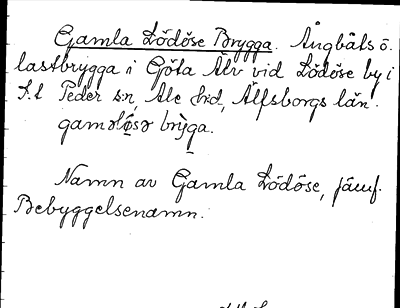 Gamla Lödöse Brygga. Ångbåts o.
lastbrygga i Göta Älv vid Lödöse by i
S:t Peder s:n, Ale hrd, Älfsborgs län.
gaməlø̀sə brỳga.
Namn av Gamla Lödöse, jämf.
Bebyggelsenamn.